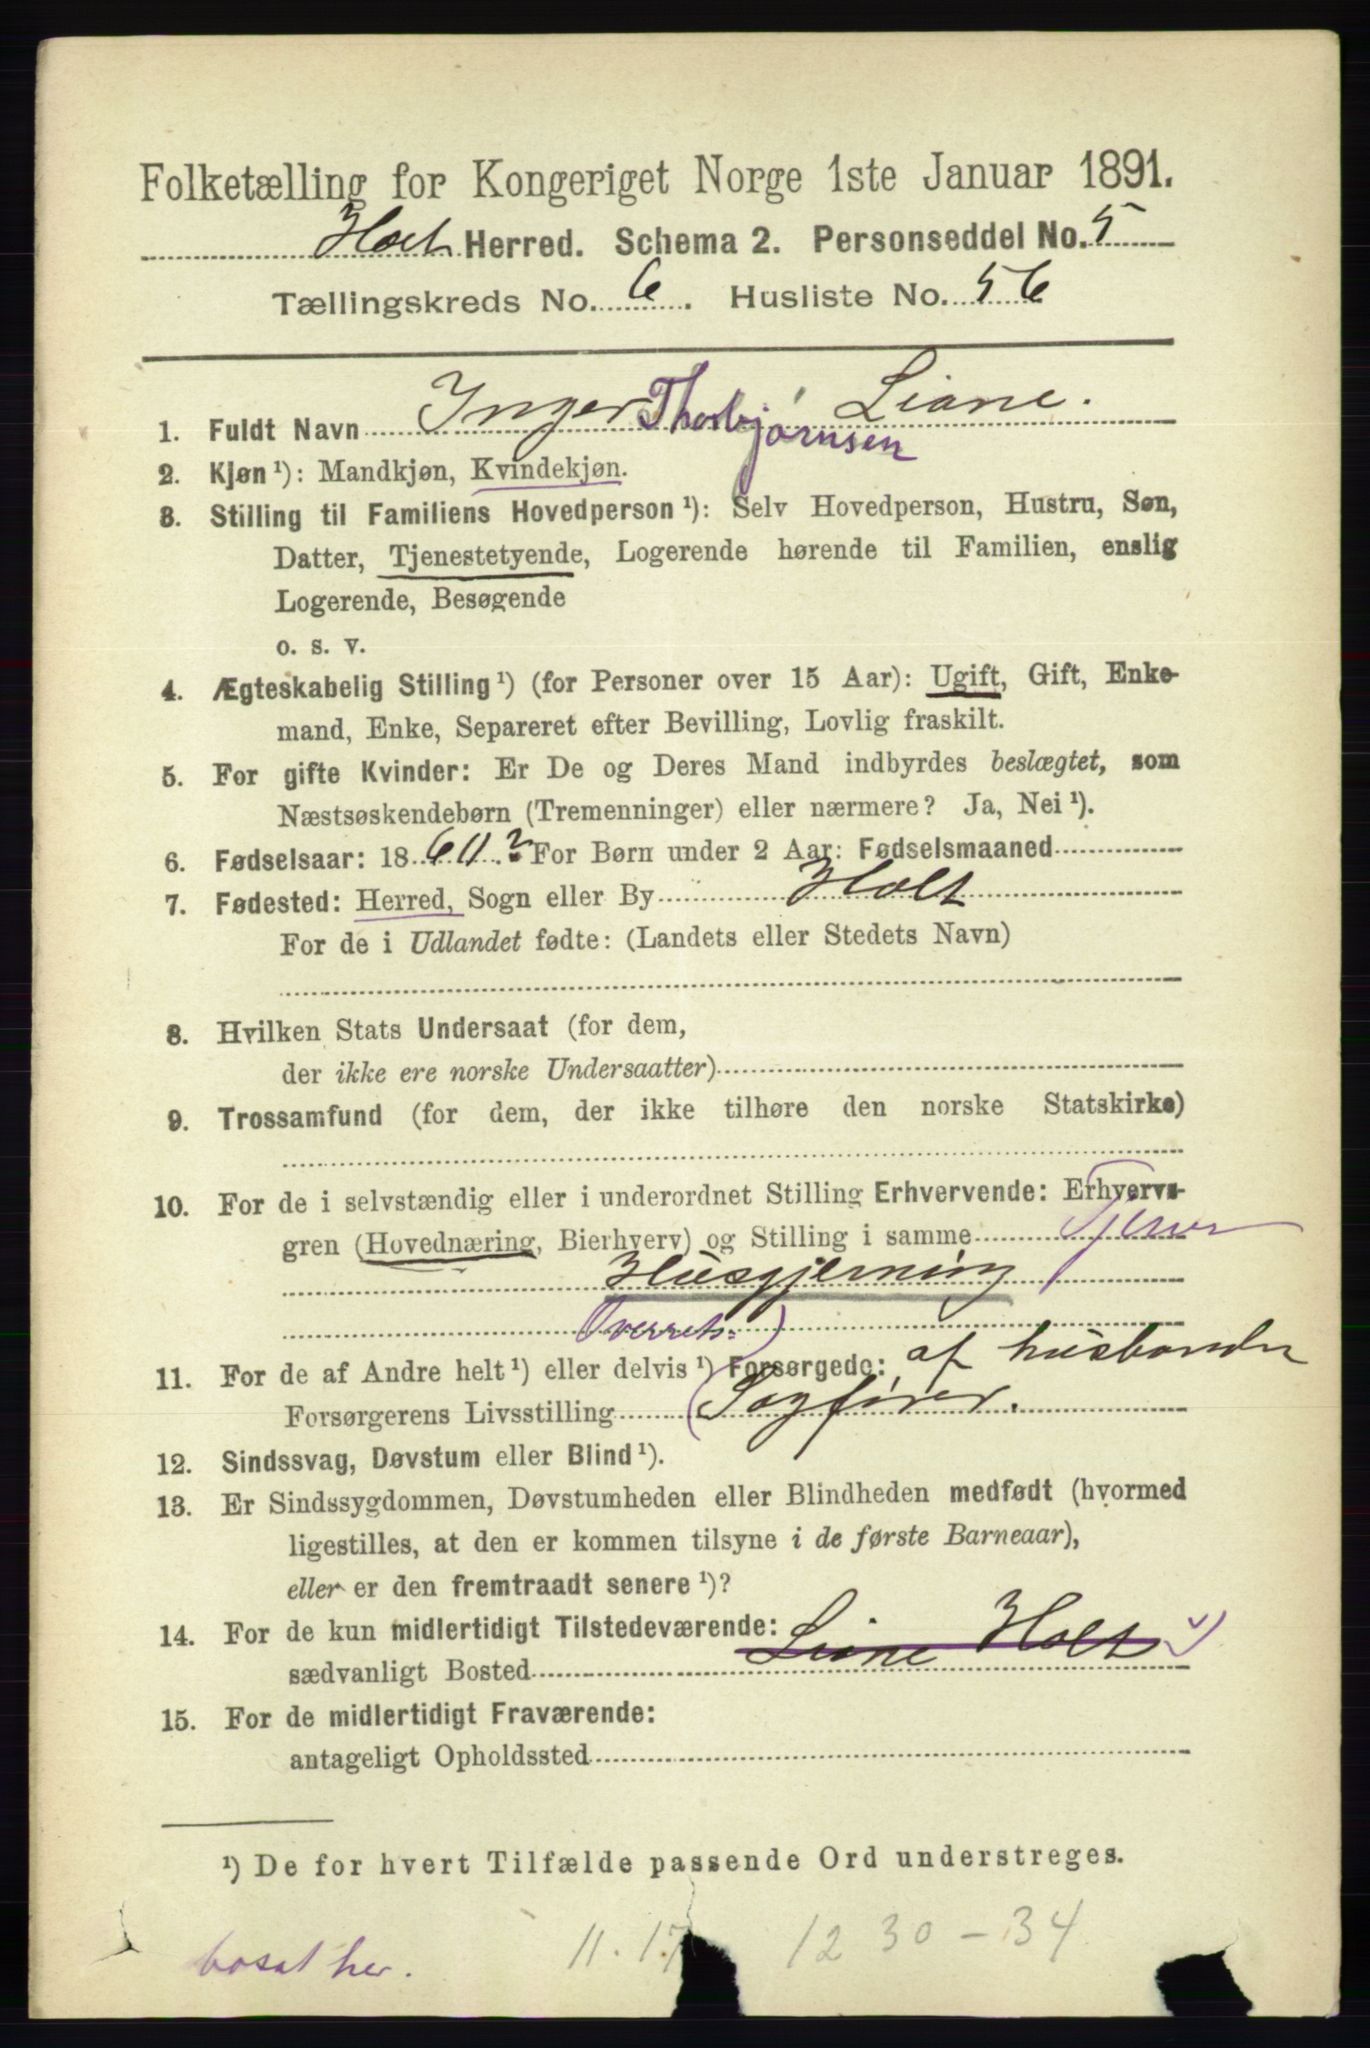 Folketælling for Kongeriget Norge 1ste Januar 1891.
Holt Herred. Schema 2. Personseddel No. 5
Tællingskreds No. 6. Husliste No. 56
1. Fuldt Navn Inger Thorbjørnsen Liane.
2. Kjøn ¹): Mandkjøn, Kvindekjøn.
3. Stilling til Familiens Hovedperson ¹): Selv Hovedperson, Hustru, Søn,
Datter, Tjenestetyende, Logerende hørende til Familien, enslig
Logerende, Besøgende
o. s. v.
4. Ægteskabelig Stilling ¹) (for Personer over 15 Aar): Ugift, Gift, Enke-
mand, Enke, Separeret efter Bevilling, Lovlig fraskilt.
5. For gifte Kvinder: Er De og Deres Mand indbyrdes beslægtet, som
Næstsøskendebørn (Tremenninger) eller nærmere? Ja, Nei ¹).
6. Fødselsaar: 18 ? For Børn under 2 Aar: Fødselsmaaned
7. Fødested: Herred, Sogn eller By Holt
For de i Udlandet fødte: (Landets eller Stedets Navn)
8. Hvilken Stats Undersaat (for dem,
der ikke ere norske Undersaatter)
9. Trossamfund (for dem, der ikke tilhøre den norske Statskirke)
10. For de i selvstændig eller i underordnet Stilling Erhvervende: Erhvervs-
gren (Hovednæring, Bierhverv) og Stilling i samme
Husgjerning
(Overrets=)
11. For de af Andre helt ¹) eller delvis ¹) Forsørgede: af husbonde
Forsørgerens Livsstilling (Sagfører.
12. Sindssvag, Døvstum eller Blind ¹).
13. Er Sindssygdommen, Døvstumheden eller Blindheden medfødt (hvormed
ligestilles, at den er kommen tilsyne i de første Barneaar),
eller er den fremtraadt senere ¹)?
14. For de kun midlertidigt Tilstedeværende: Liane Holt
sædvanligt Bosted
15. For de midlertidigt Fraværende:
antageligt Opholdssted
¹) De for hvert Tilfælde passende Ord understreges.
bosat her. 11.17 12 30 - 34